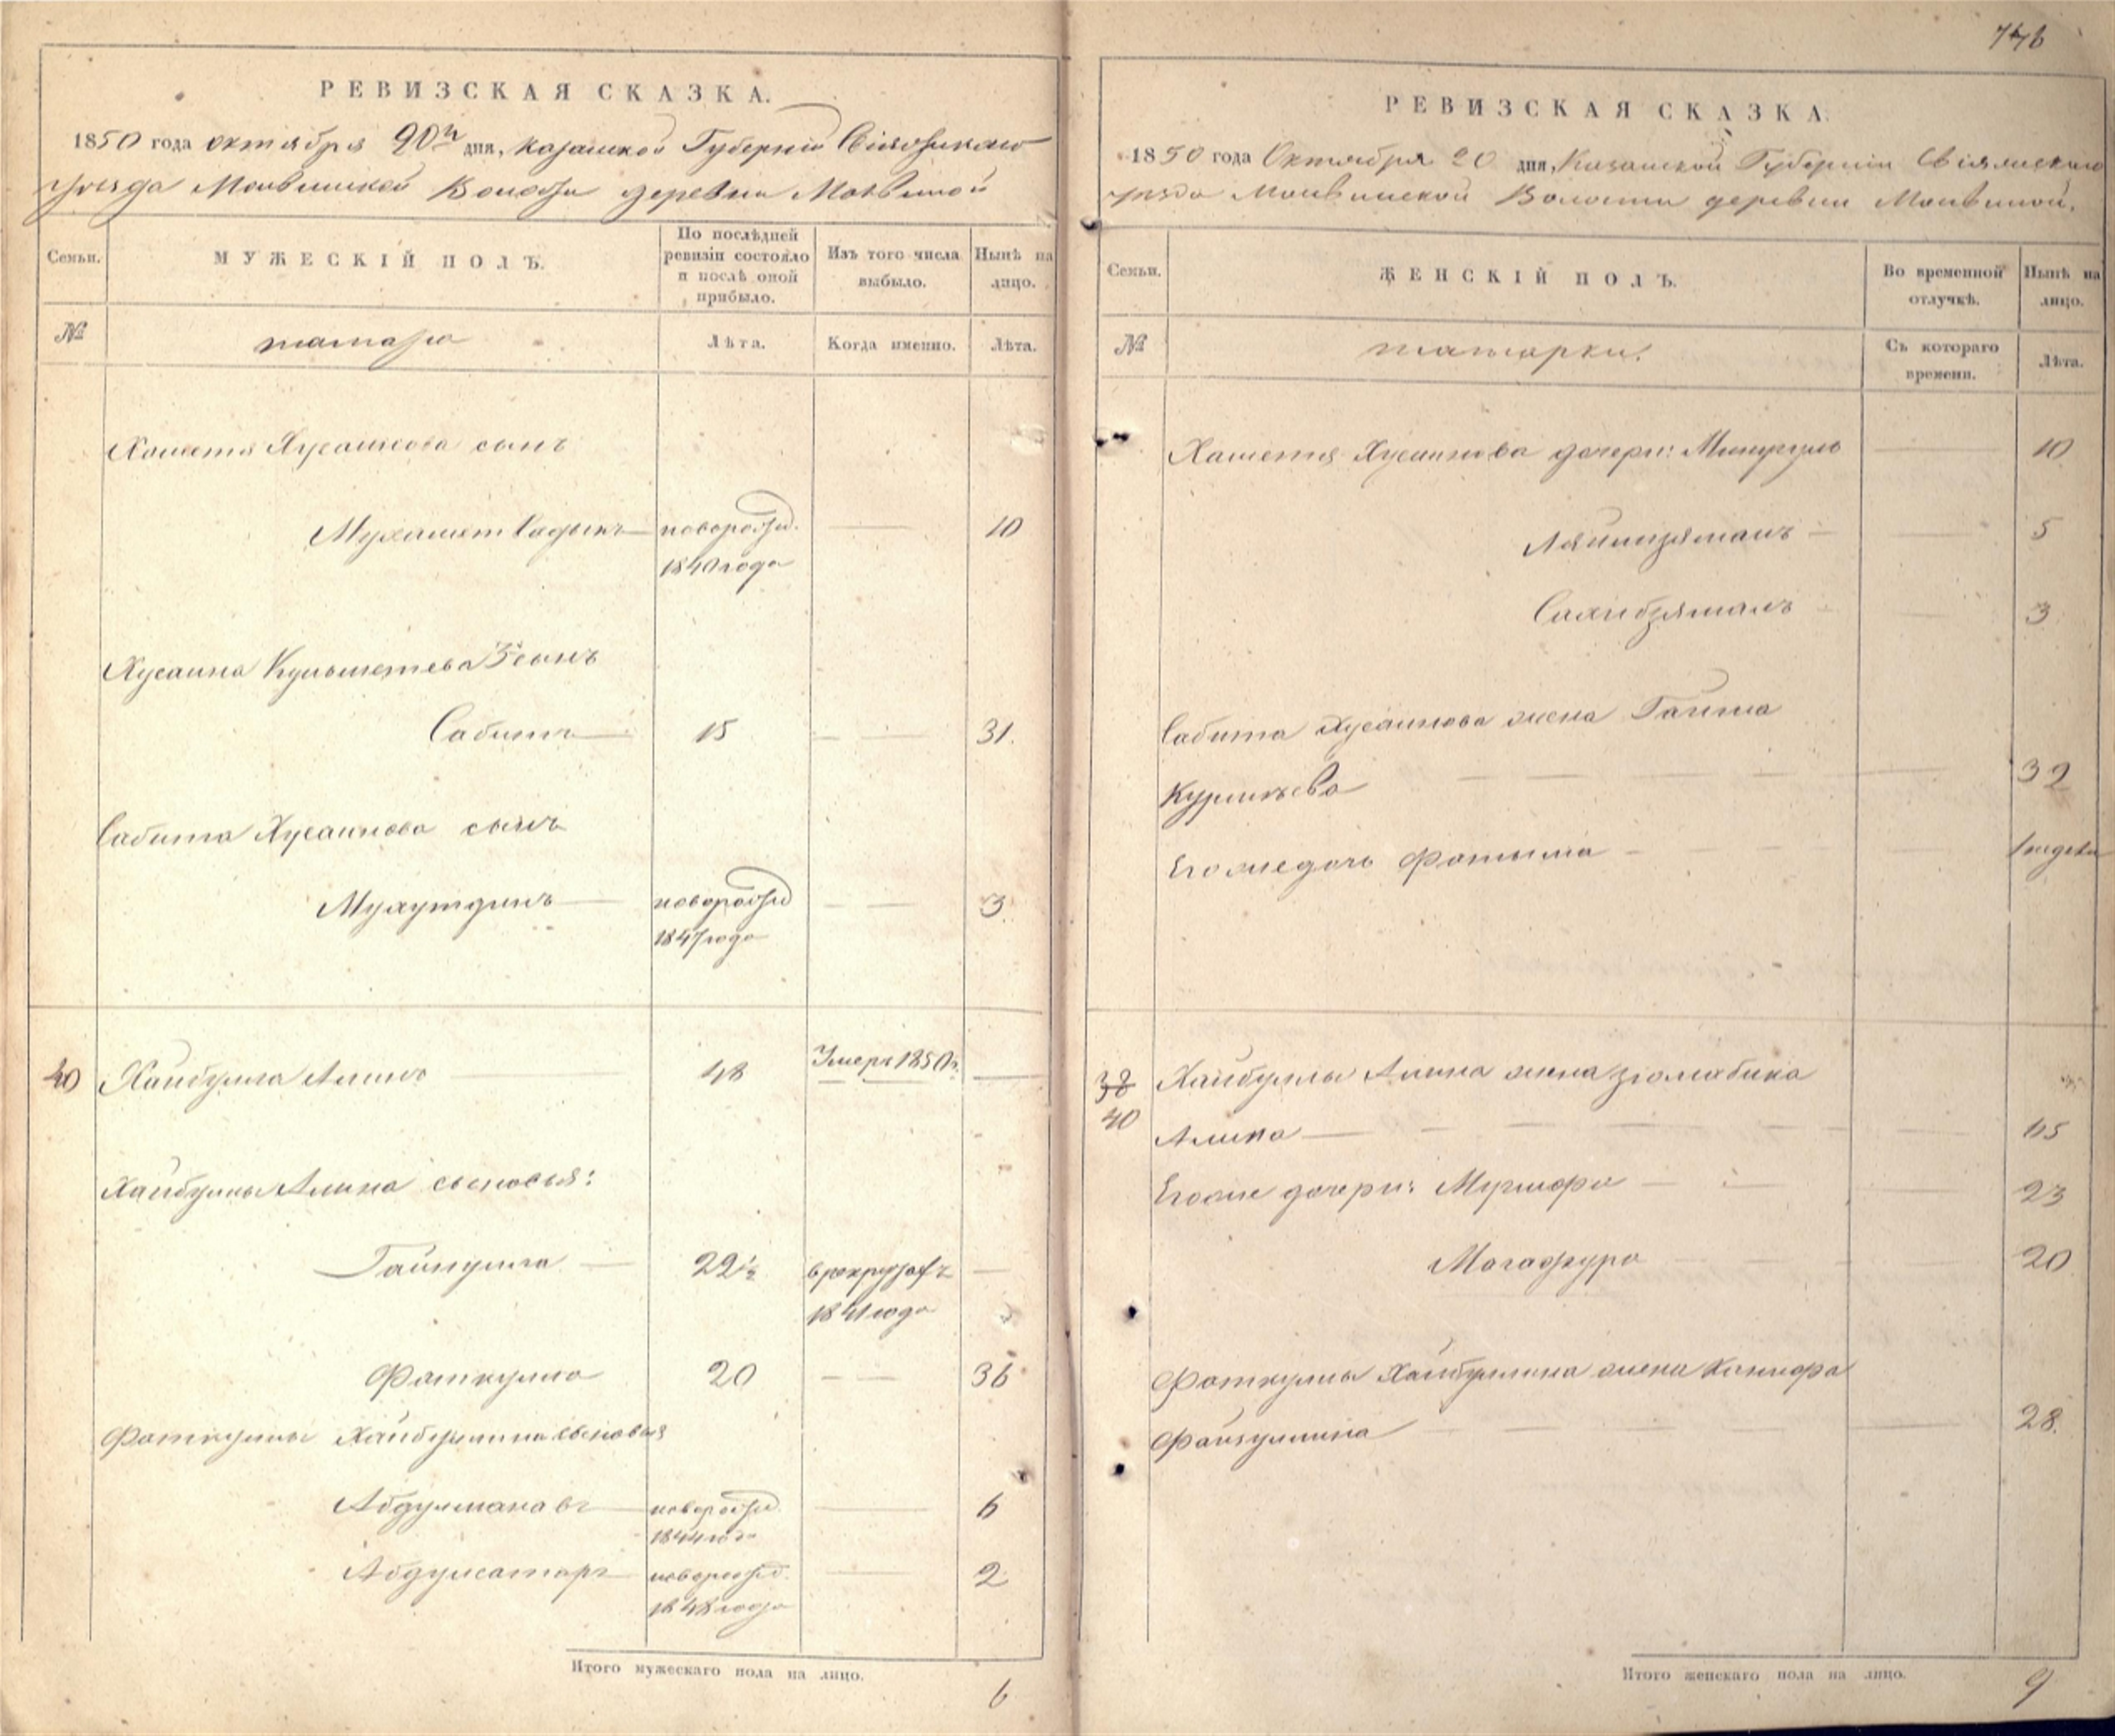 776
РЕВИЗСКАЯ СКАЗКА.
1850 года октября 20го дня, казанской Губернии Свіяжскаго
уезда Моквинской Волости деревни Моквиной
Семьи.
МУЖЕСКІЙ ПОЛЪ.
По послѣдней ревизіи состояло и послѣ оной прибыло.
Изъ того числа выбыло.
Нынѣ на лицо.
№
татары
Лѣта.
Когда именно.
Лѣта.
Хаметя Хусаинова сынъ
Мухамет Садыкъ новорожд. 10
1840 года
Хусаина Кульметева 3й сынъ
Сабитъ 15 31.
Сабита Хусаинова сынъ
Мухутдинъ новорожд 3
1847 года
40 Хайбулла Алинъ 48 Умеръ 1850 г.
Хайбуллы Алина сыновья:
Гайнулла 22 1/2 в рекрутахъ
1841 года
Фаткулла 20 36
Фаткуллы Хайбуллина сыновья
Абдулманавъ новорожд. 6
1844 года
Абдулсатаръ новорожд. 2
1848 года
Итого мужескаго пола на лицо.
6
РЕВИЗСКАЯ СКАЗКА.
1850 года Октября 20 дня, Казанской Губернии Свіяжскаго
уезда Моквинской Волости деревни Моквиной.
Семьи.
ЖЕНСКІЙ ПОЛЪ.
Во временной отлучкѣ.
Нынѣ на лицо.
№
татарки.
Съ котораго времени.
Лѣта.
Хаметя Хусаинова дочери: Минугуль 10
5
Сахибзяманъ 3
Сабита Хусаинова жена Гайша
32
Его же дочь Фатыма 1 недели
38 Хайбуллы Алина жена Зюлябика
40 Алина 65
Его же дочери: 23
20
Фаткуллы Хайбуллина жена Ханифа
Файзуллина 28.
Итого женскаго пола на лицо.
9